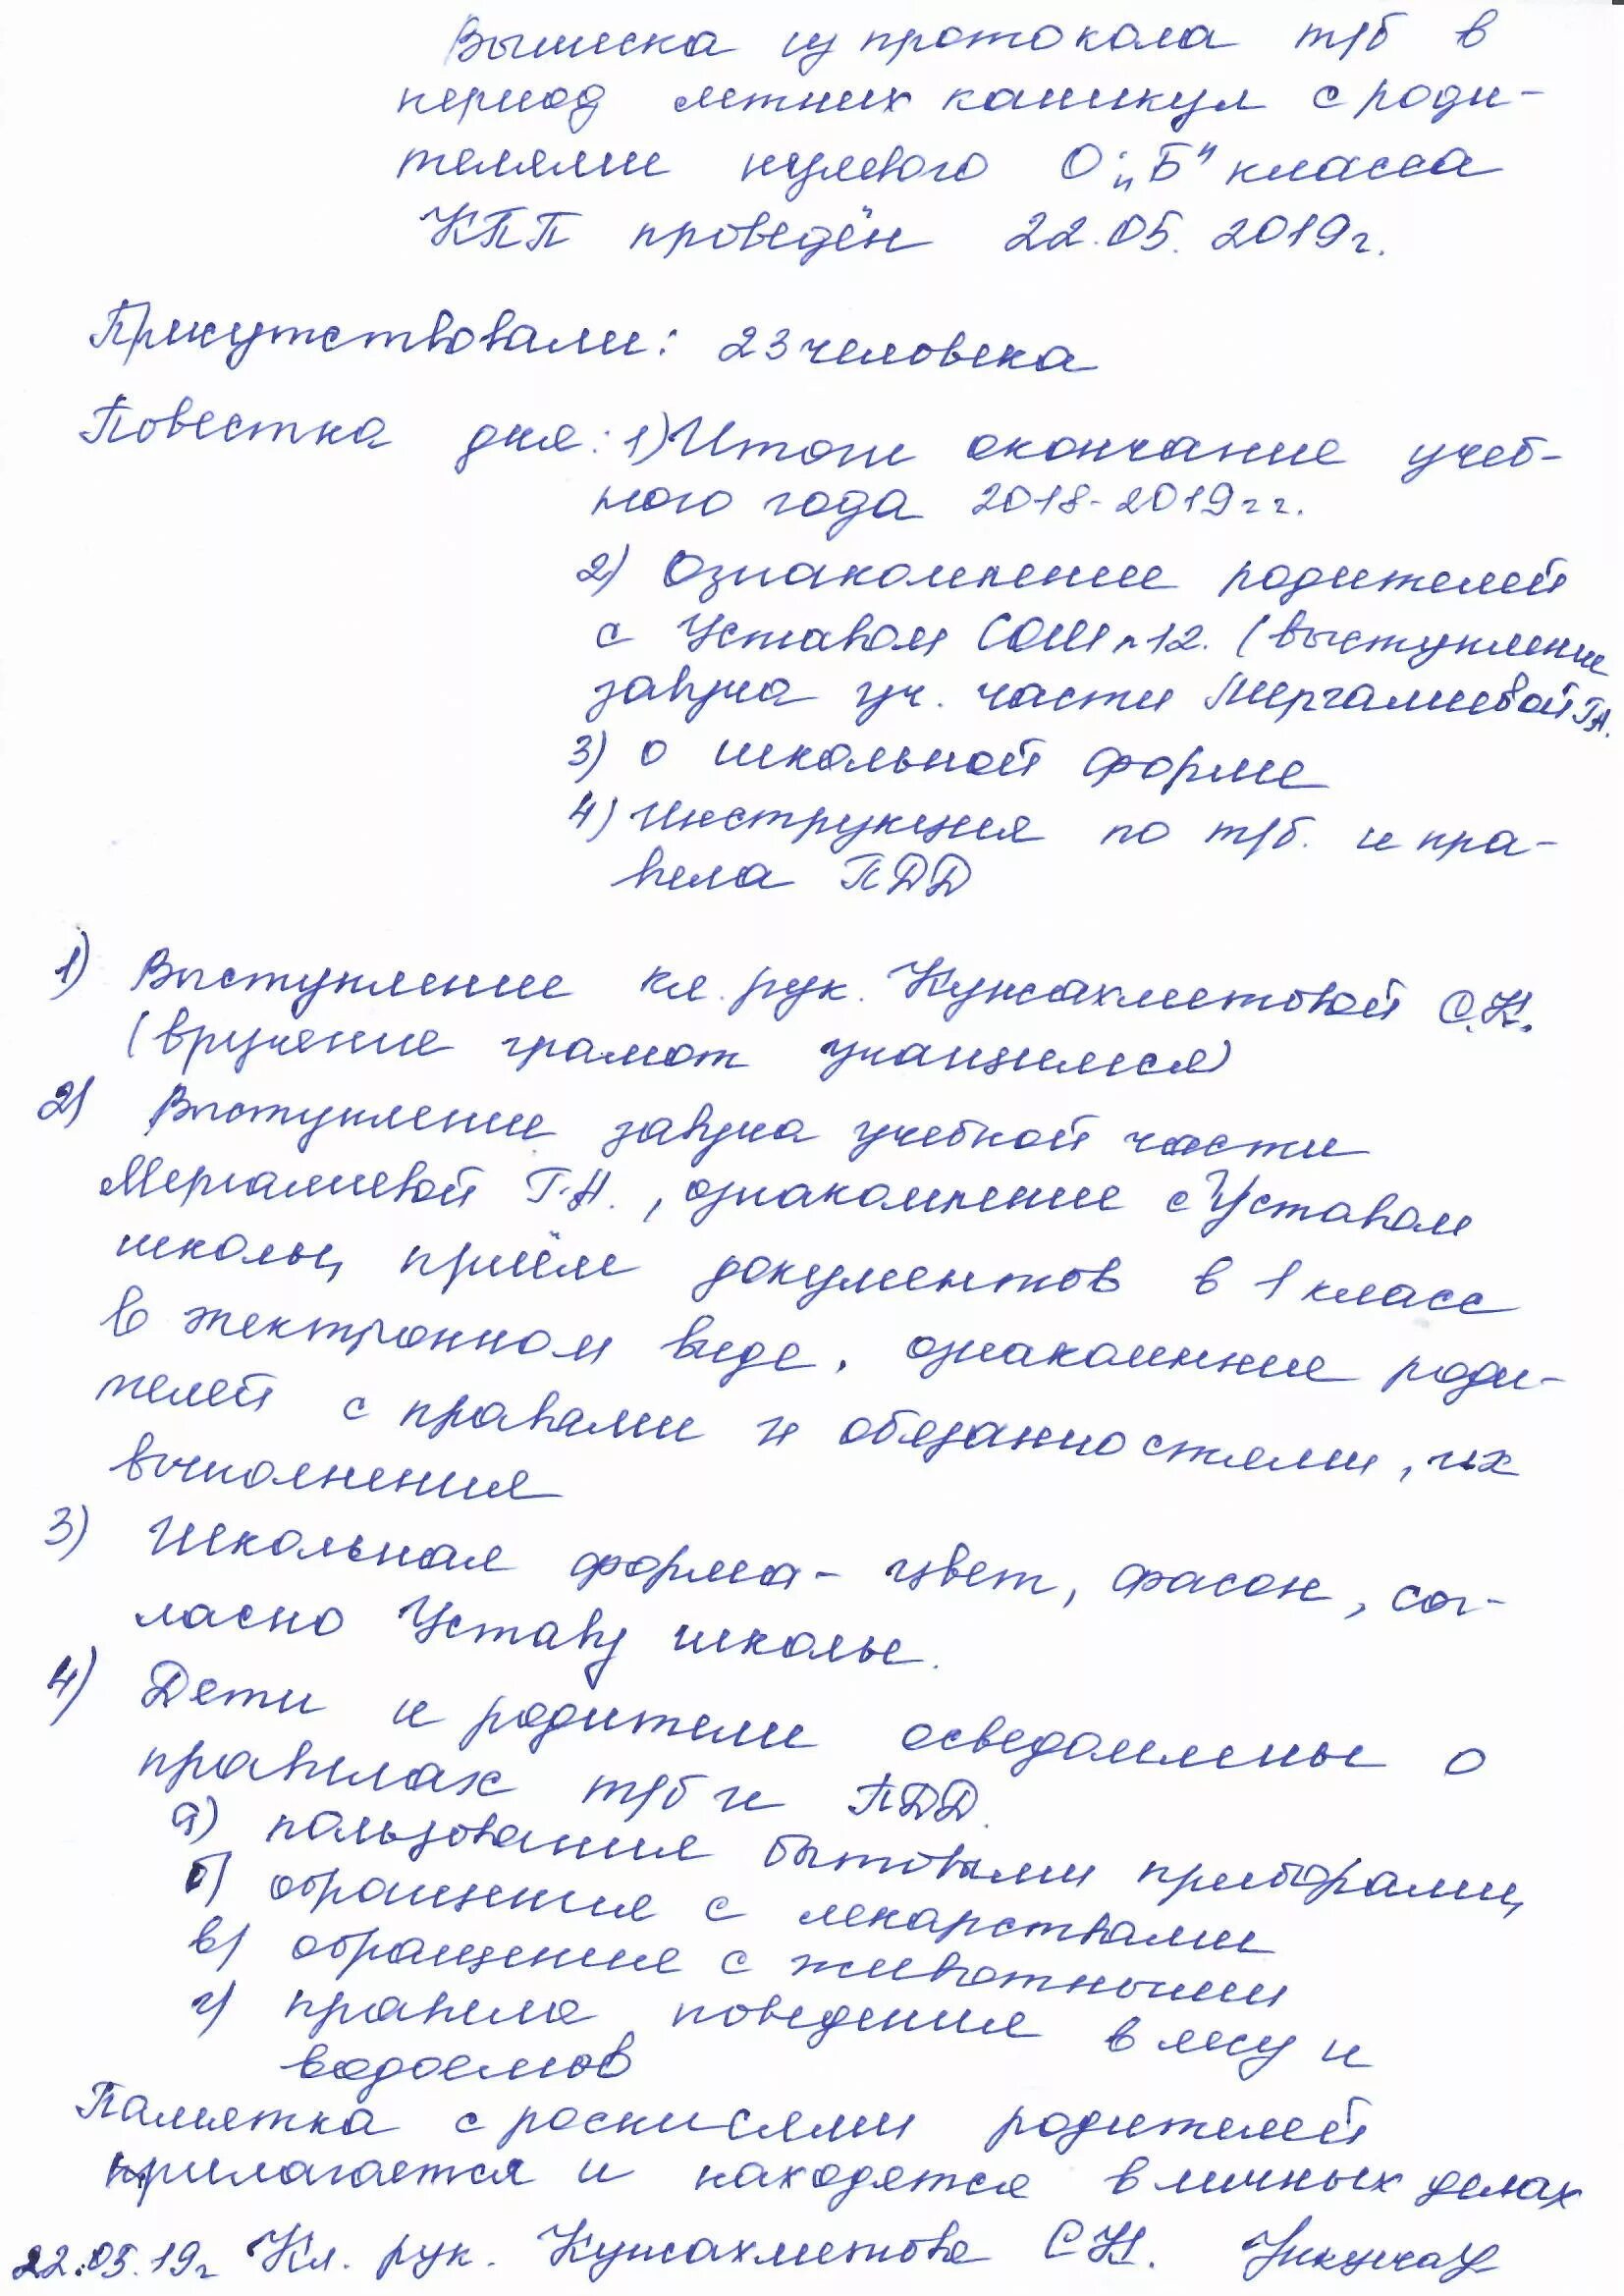 Выписка из протокола т/б в
период летних каникул с роди-
телями нулевого 0 „Б" класса
КПП проведён 22.05.2019г.
Присутствовали: 23 человека
Повестка дня: 1) Итоги окончание учеб-
ного года 2018-2019гг.
2) Ознакомление родителей
с Уставом СОШ №12. (выступление
завуча уч. части Мергалиевой Г.А.
3) о школьной форме
4) Инструкция по т/б. и пра-
вила ПДД
1) Выступление кл. рук. Кужахметовой С.К.
(вручение грамот учащимся)
2) Выступление завуча учебной части
Мергалиевой Г.А., ознакомление с Уставом
школы, приём документов в 1 класс
в электронном виде, ознакомление роди-
телей с правами и обязанностями, их
выполнения
3) Школьная форма - цвет, фасон, сог-
ласно Уставу школы.
4) Дети и родители осведомлены о
правилах т/б и ПДД.
а) пользования бытовыми приборами,
б) обращения с лекарствами
в) обращения с животными
г) правила поведения в лесу и
водоемов
Памятка с росписями родителей
прилагается и находятся в личных делах
22.05.19г Кл. рук. Кужахметова С.К.